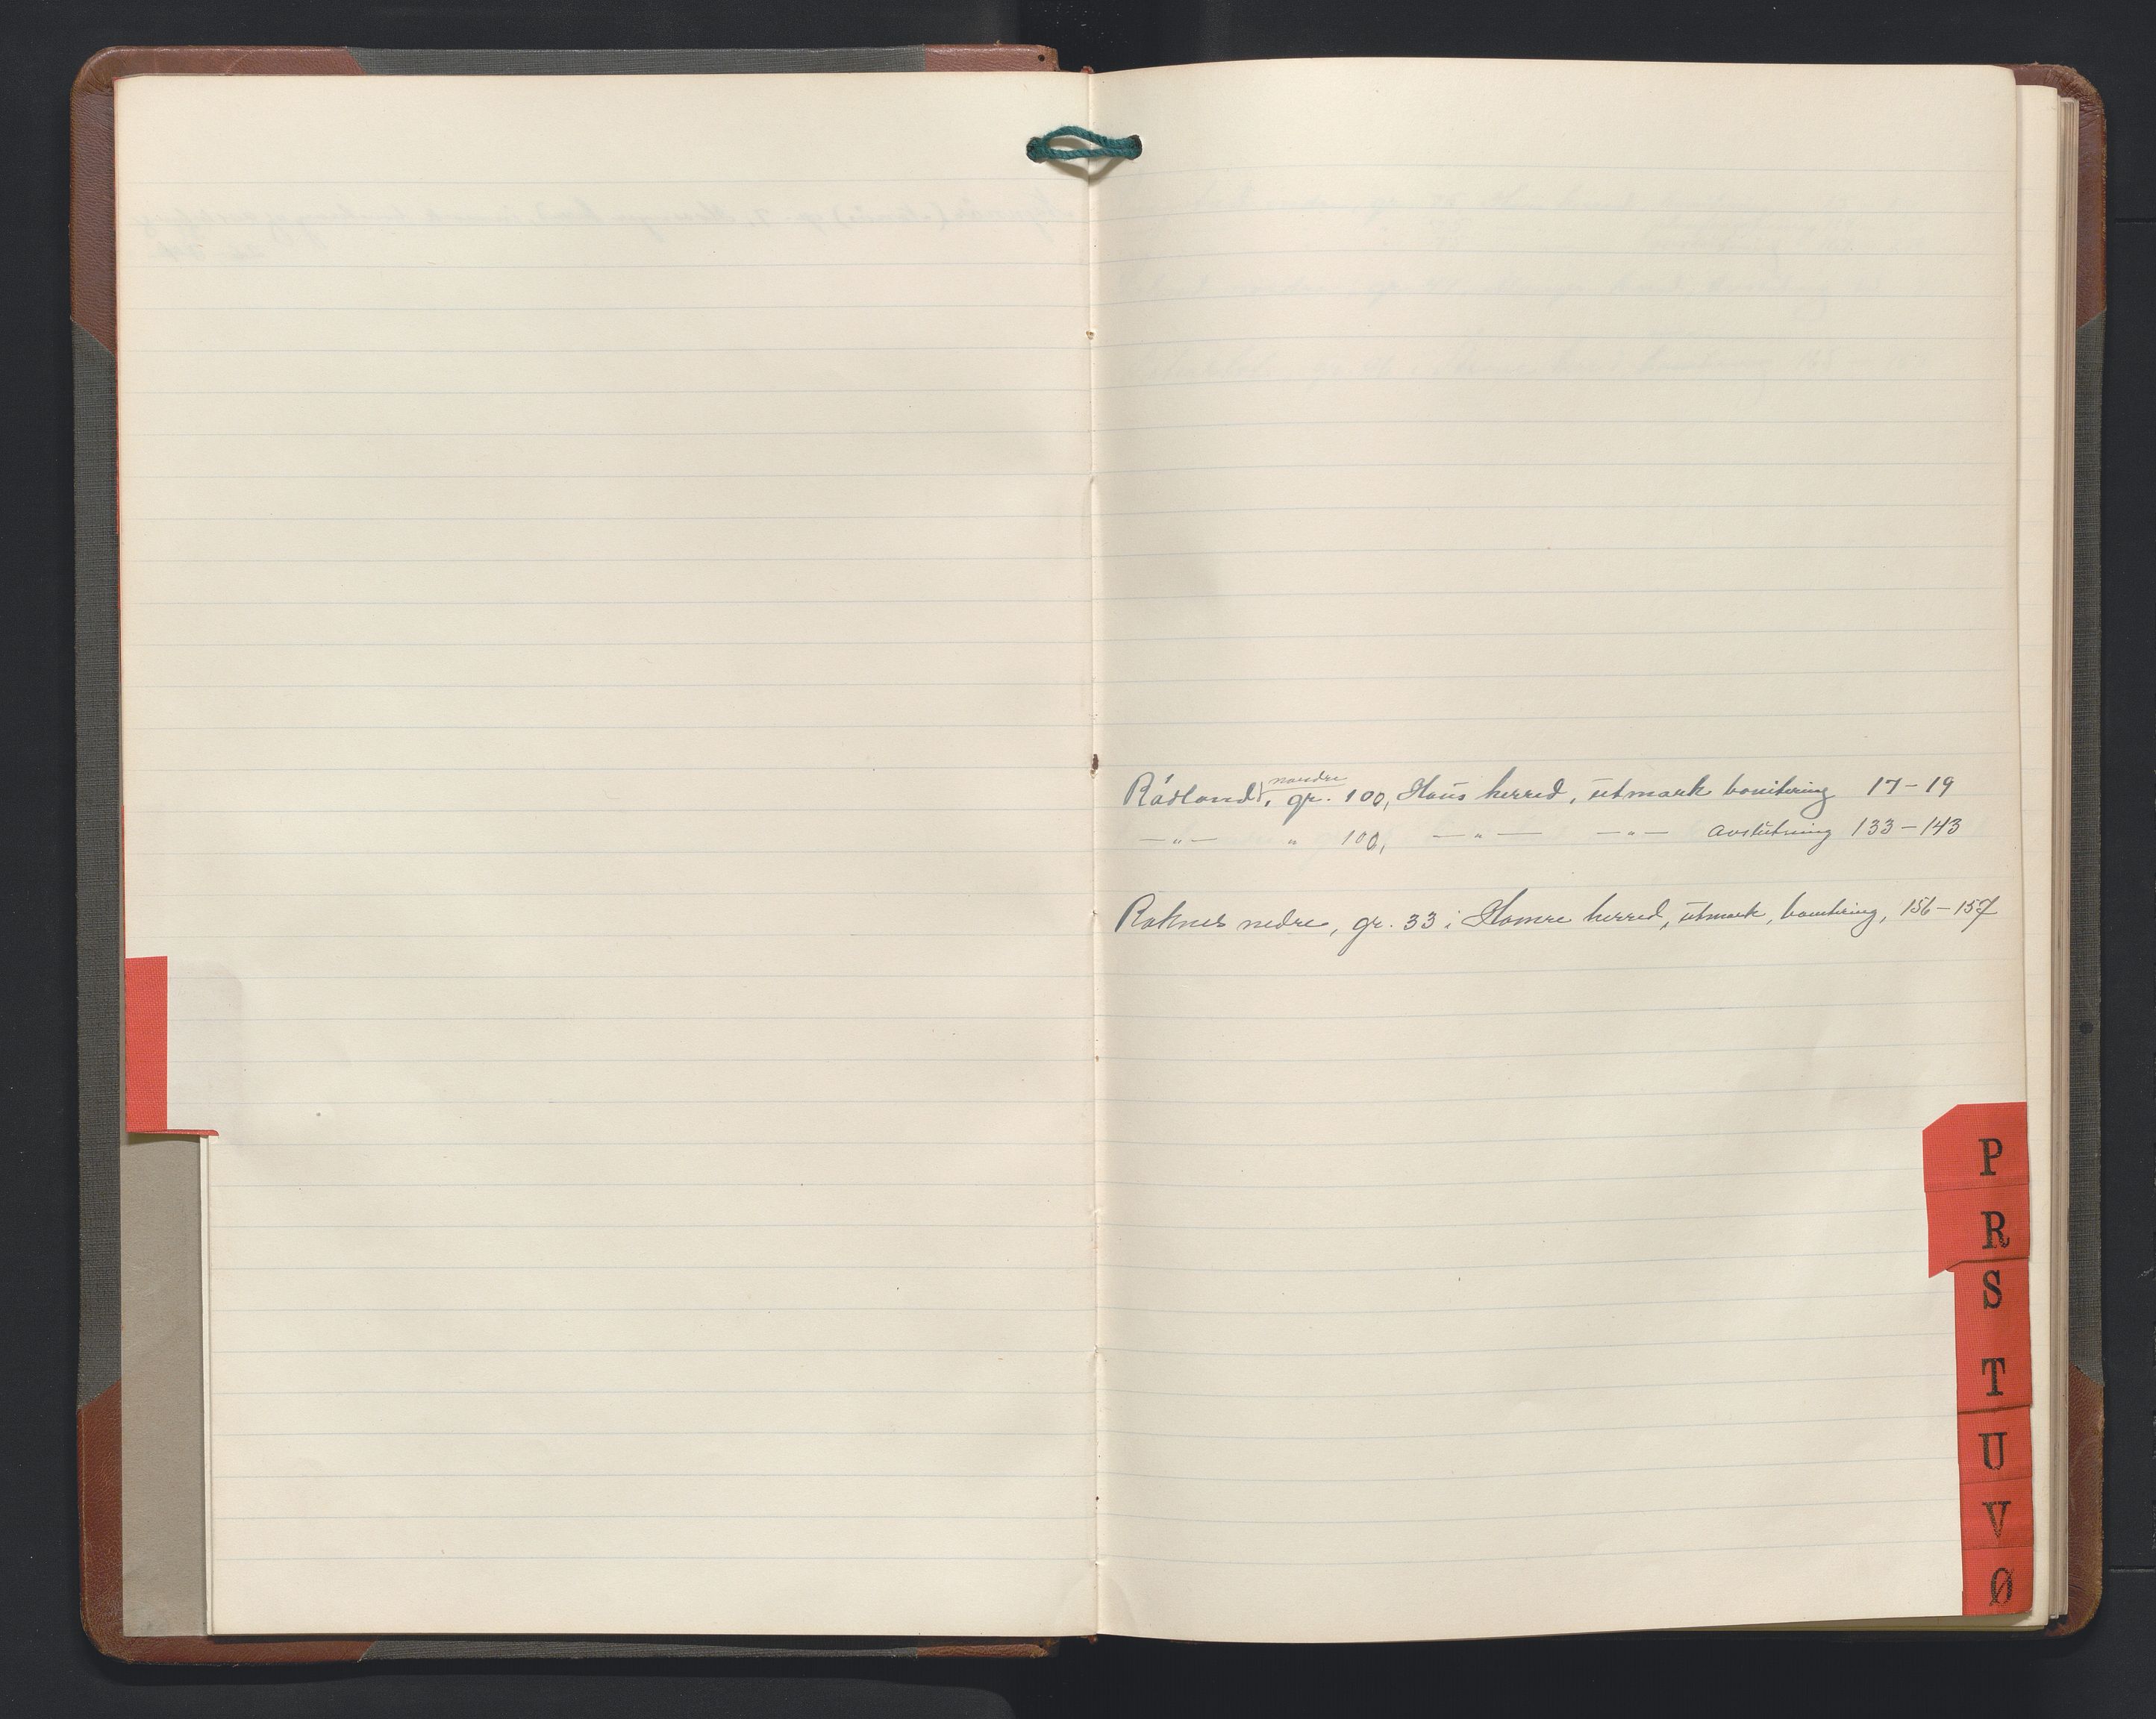 Rådland, nordre, gr. 100, Haus herred, utmark bonitering 17-19
—"— " 100, —"— —"— avslutning 133-143
Raknes nedre, gr. 33 i Hamre herred, utmark, bonitering, 156-157
P
R
S
T
U
V
Ø